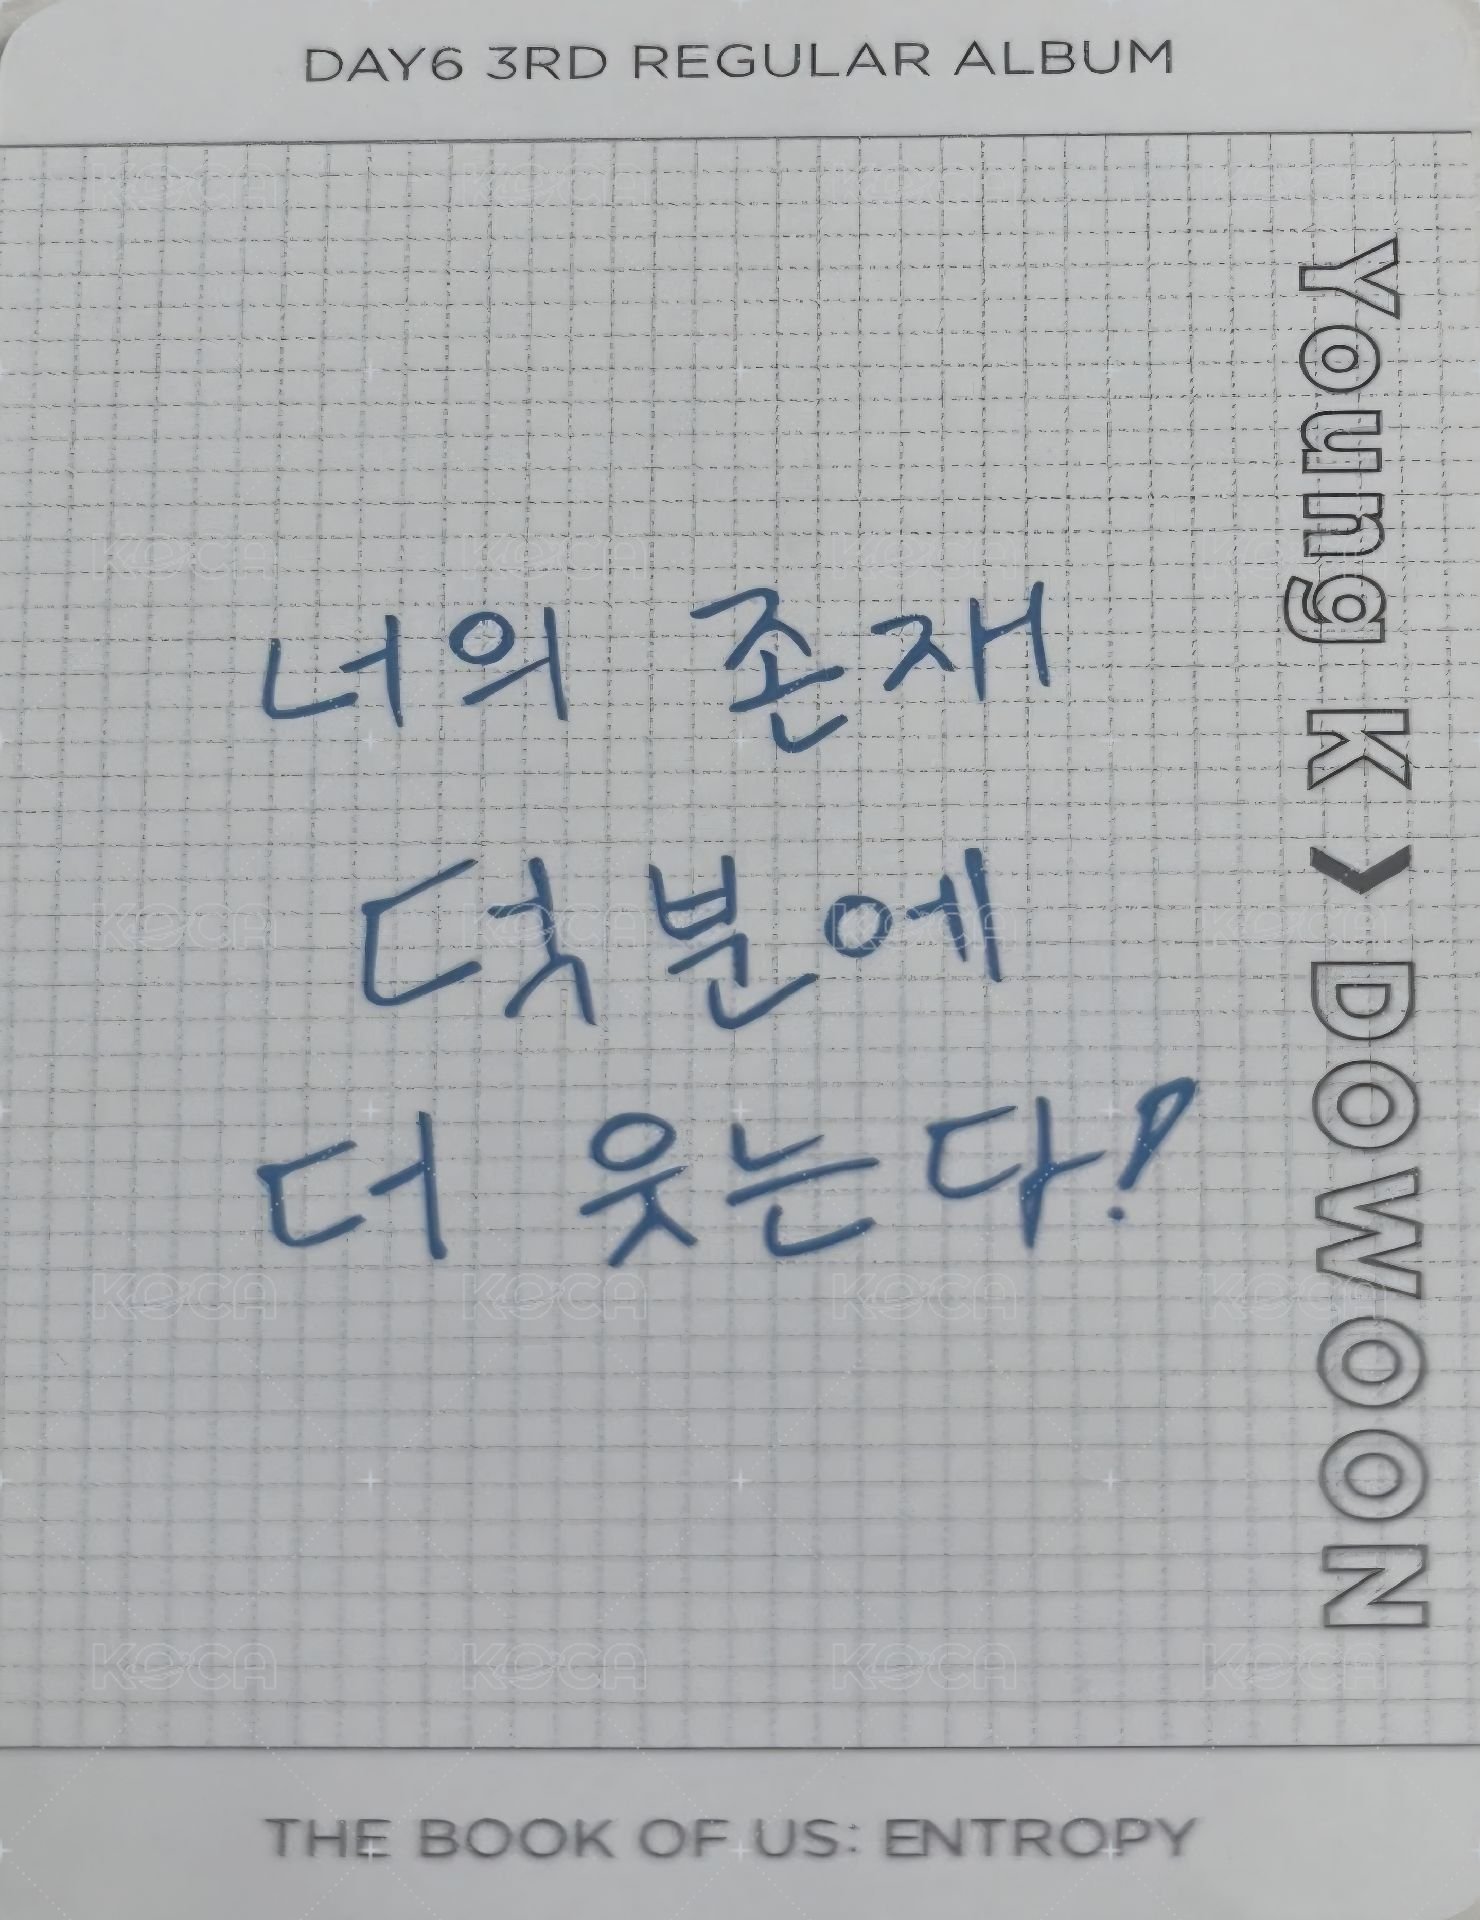 DAY6 3RD REGULAR ALBUM
Young K > DOWOON
너의 존재
덕분에
더 웃는다!
THE BOOK OF US: ENTROPY
KOCA